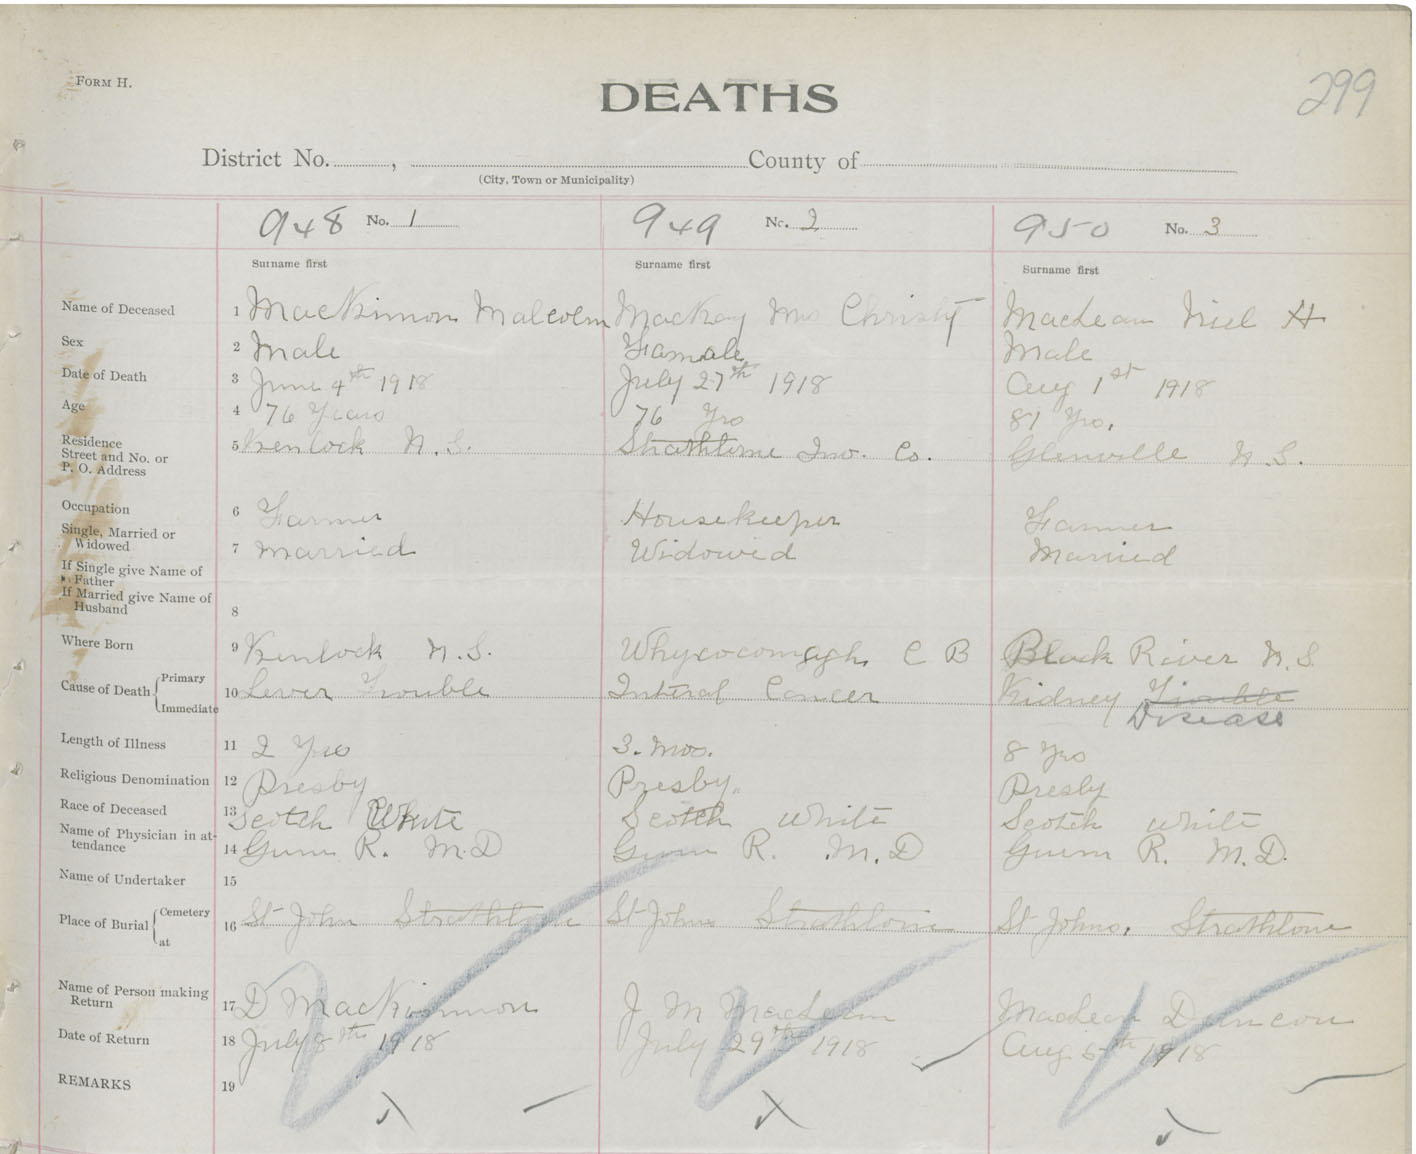 FORM H.
DEATHS
299
District No. , County of
(City, Town or Municipality)
948 No. 1 949 No. 2 950 No. 3
Surname first Surname first Surname first
Name of Deceased 1 MacKinnon Malcolm MacKay Mrs Christy MacLean Niel H
Sex 2 Male Famale Male
Date of Death 3 June 4th 1918 July 27th 1918 Aug 1st 1918
Age 4 76 Years 76 Yrs 81 Yrs.
Residence
Street and No. or
P. O. Address 5 Kenlock N.S. Strathlorne Inv. Co. Glenville N.S.
Occupation 6 Farmer Housekeeper Farmer
Single, Married or
Widowed 7 Married Widowed Married
If Single give Name of
Father
If Married give Name of
Husband 8
Where Born 9 Kenlock N.S. Whycocomagh C B Black River N.S.
Cause of Death Primary
Immediate 10 Lever Trouble Interal Cancer Kidney Trouble
Disease
Length of Illness 11 2 Yrs 3. Mos. 8 Yrs
Religious Denomination 12 Presby Presby. Presby
Race of Deceased 13 Scotch White Scotch White Scotch White
Name of Physician in at-
tendance 14 Gunn R. M.D Gunn R. M.D Gunn R. M.D.
Name of Undertaker 15
Place of Burial Cemetery
at 16 St John Strathlorne St Johns Strathlorne St Johns. Strathlorne
Name of Person making
Return 17 D MacKinnon J M MacLean MacLean Duncan
Date of Return 18 July 8th 1918 July 29th 1918 Aug 5th 1918
REMARKS 19